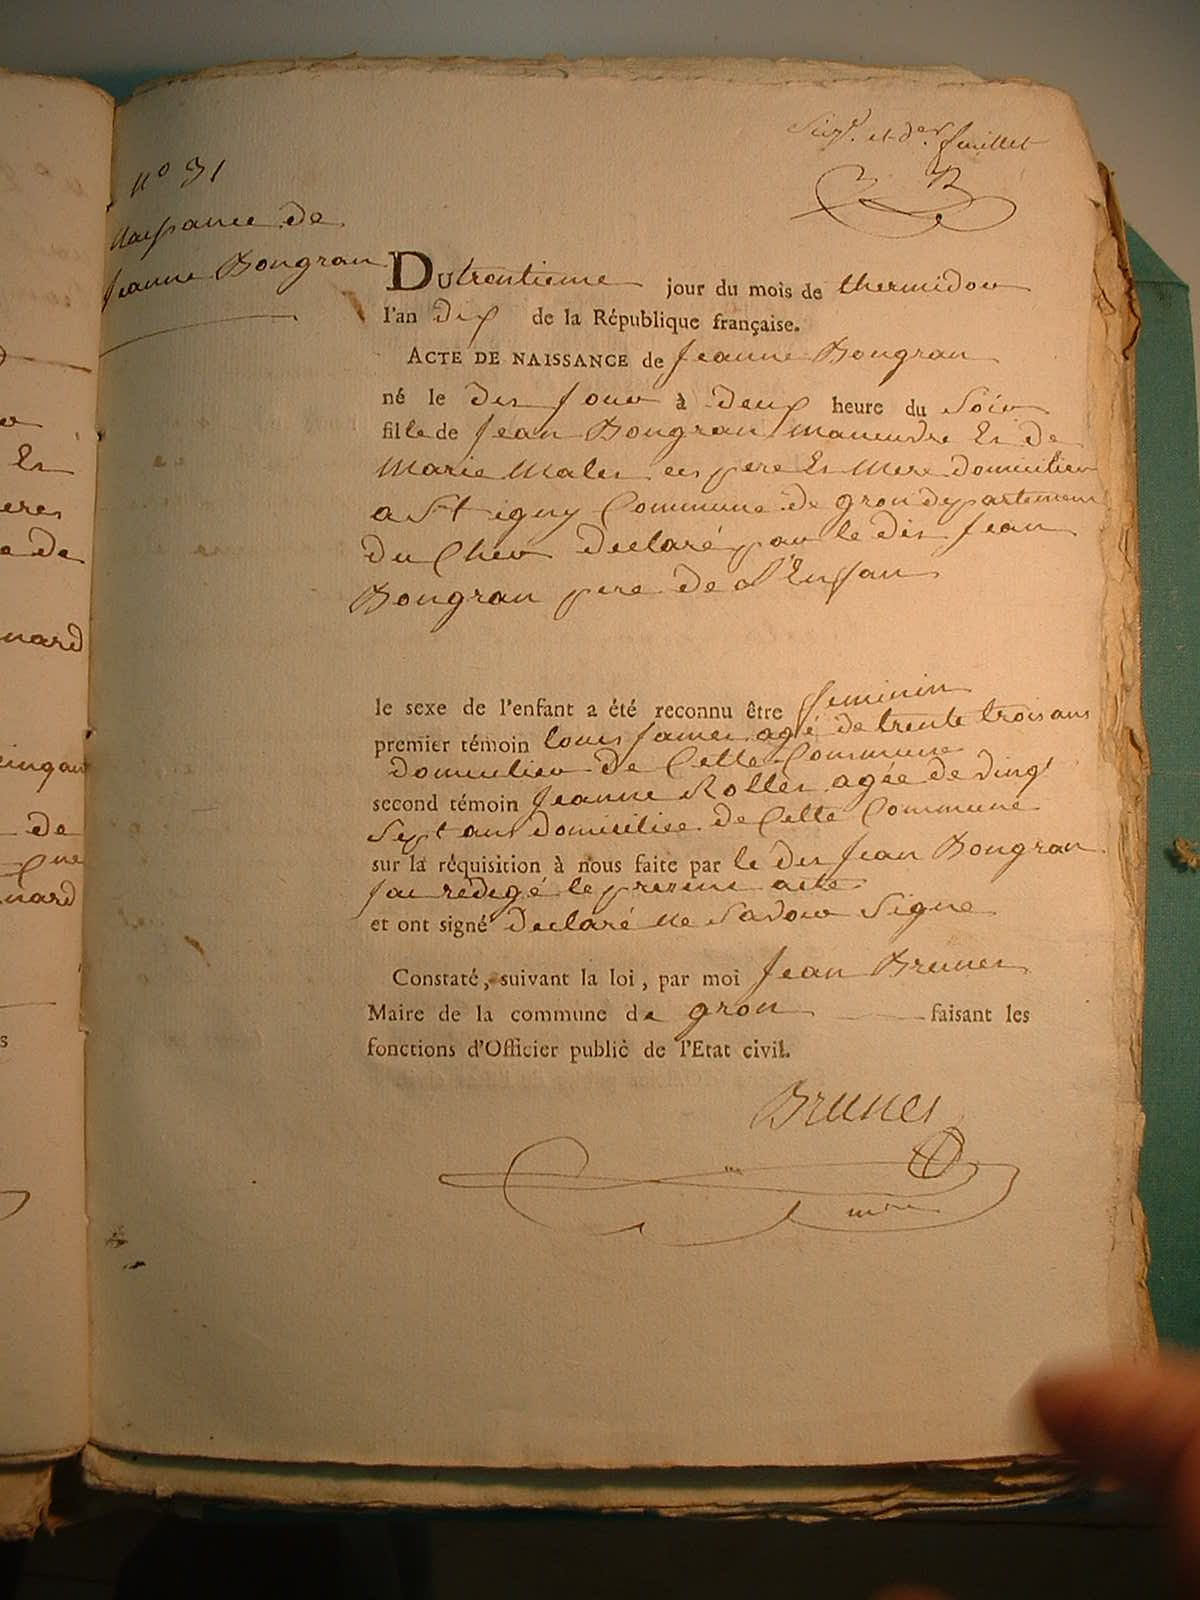 et der. feuillet
B
n° 31
Naissance de
Jeanne Bongran
DU trentieme jour du mois de thermidor
l'an dix de la République française.
ACTE DE NAISSANCE de Jeanne Bongran
né le dit jour à deux heure du Soir
fille de Jean Bongran maneuvre Et de
Marie Malet ces pere Et Mere domicilier
a St igny Commune de gron departement
du Cher declaré par le dit Jean
Bongran pere de L'Enfan
le sexe de l'enfant a été reconnu être feminin
premier témoin louis Jamet agé de trente trois ans
domicilier de Cette Commune
second témoin Jeanne Rollet agée de vingt
Sept ans domiciliee de Cette Commune
sur la réquisition à nous faite par le dit Jean Bongran
Jai redigé le present acte
et ont signé declaré ne Savoir Signe
Constaté, suivant la loi, par moi Jean Brunet
Maire de la commune de gron faisant les
fonctions d'Officier public de l'Etat civil.
Brunet
maire
er
Et
eres
e de
nard
de
nard
s